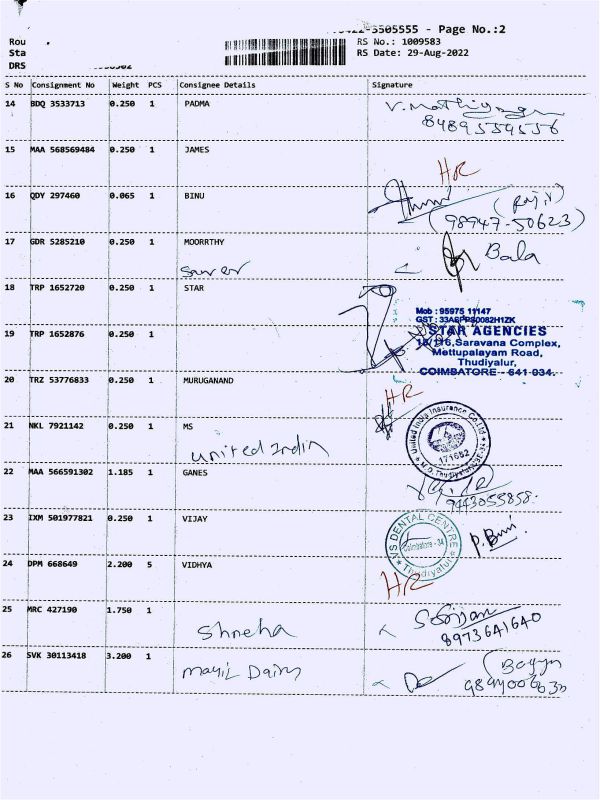 3505555 - Page No.:2
Rou
RS No.: 1009583
Sta
RS Date: 29-Aug-2022
DRS
S No Consignment No Weight PCS Consignee Details Signature
14 BDQ 3533713 0.250 1 PADMA
8489559556
15 MAA 568569484 0.250 1 JAMES
HR
16 QDY 297460 0.065 1 BINU
(98947-50623)
17 GDR 5285210 0.250 1 MOORRTHY
Bala
18 TRP 1652720 0.250 1 STAR
Mob : 95975 11147
19 TRP 1652876 0.250 1
STAR AGENCIES
Saravana Complex,
Mettupalayam Road,
Thudiyalur,
COIMBATORE - 641 034.
20 TRZ 53776833 0.250 1 MURUGANAND
HR
21 NKL 7921142 0.250 1 MS
united India
United India Insurance Co. Ltd
171682
22 MAA 566591302 1.185 1 GANES
9443055858
23 IXM 501977821 0.250 1 VIJAY
DENTAL CENTRE
Coimbatore - 34
Thudiyalur
24 DPM 668649 2.200 5 VIDHYA
HR
25 MRC 427190 1.750 1
Shneha
8973641640
26 SVK 30113418 3.200 1
Mayil Dairy